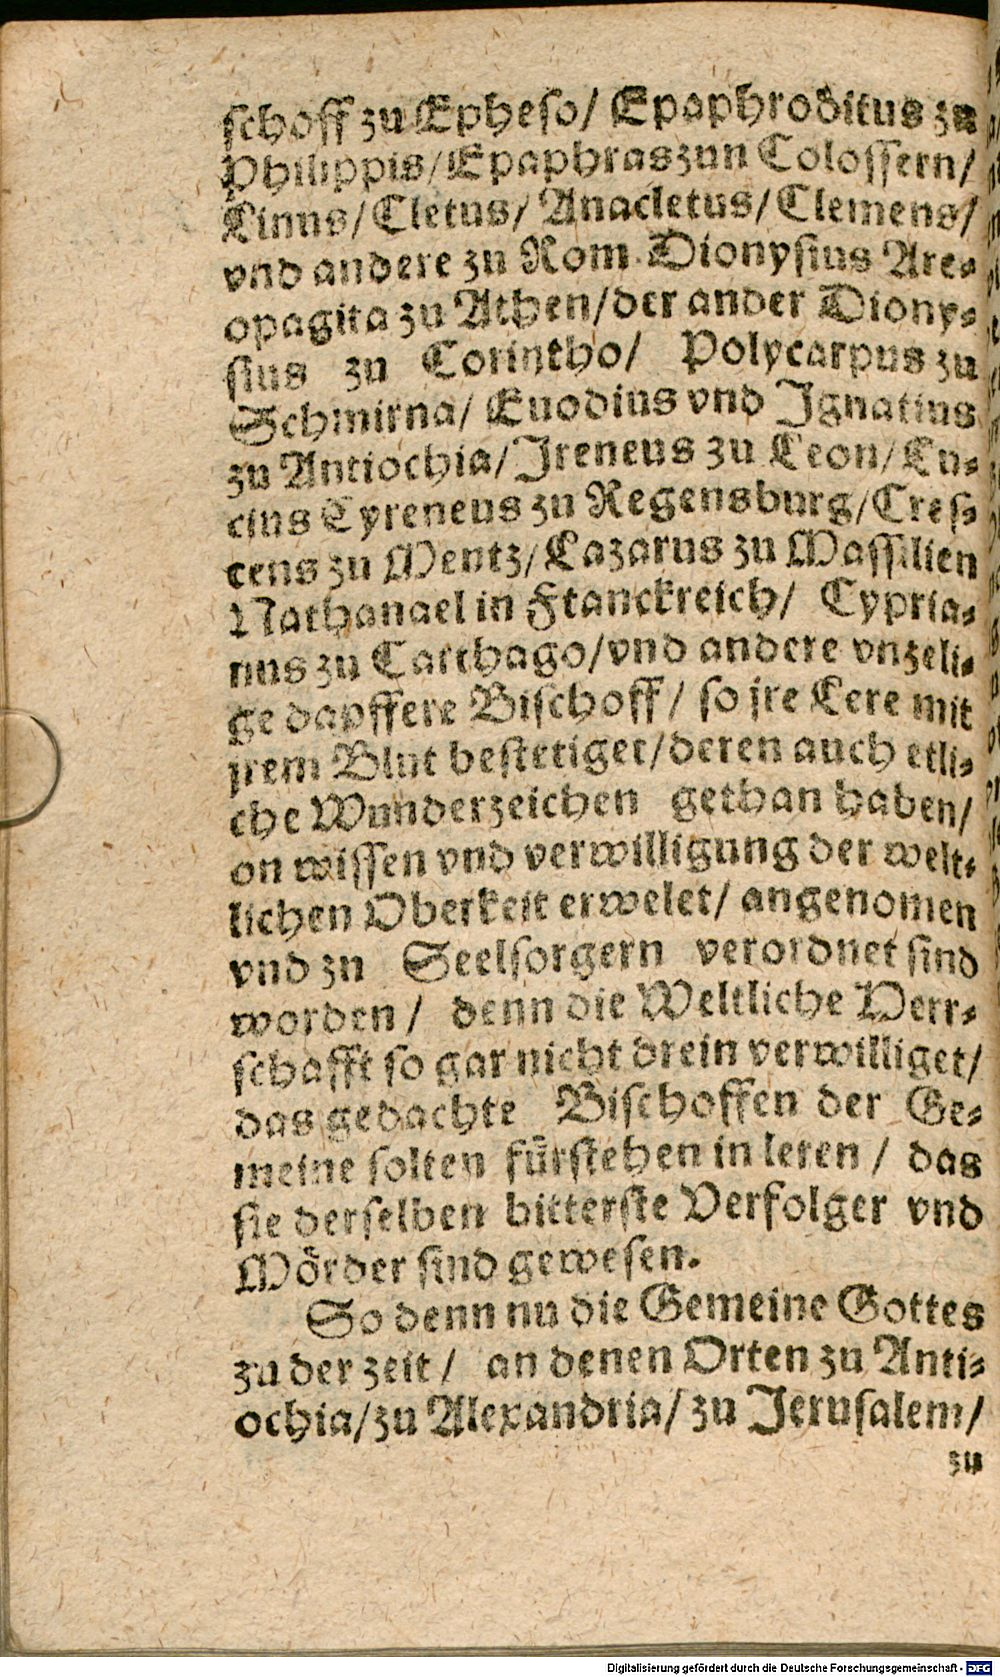 schoff zu Epheso/ Epaphroditus zu
Philippis/ Epaphras zun Colossern/
Linus/ Cletus/ Anacletus/ Clemens/
vnd andere zu Rom. Dionysius Are-
opagita zu Athen/ der ander Diony-
sius zu Corintho/ Polycarpus zu
Schmirna/ Euodius vnd Ignatius
zu Antiochia/ Ireneus zu Leon/ Lu-
cius Cyreneus zu Regensburg/ Cres-
cens zu Mentz/ Lazarus zu Massilien
Nathanael in Franckreich/ Cypria-
nus zu Carthago/ vnd andere vnzeli-
ge dapffere Bischoff/ so jre Lere mit
jrem Blut bestetiget/ deren auch etli-
che Wunderzeichen gethan haben/
on wissen vnd verwilligung der welt-
lichen Oberkeit erwelet/ angenomen
vnd zu Seelsorgern verordnet sind
worden/ denn die Weltliche Herr-
schafft so gar nicht drein verwilliget/
das gedachte Bischoffen der Ge-
meine solten fürstehen in leren/ das
sie derselben bitterste Verfolger vnd
Mörder sind gewesen.
So denn nu die Gemeine Gottes
zu der zeit/ an denen Orten zu Anti-
ochia/ zu Alexandria/ zu Jerusalem/
zu
Digitalisierung gefördert durch die Deutsche Forschungsgemeinschaft - DFG